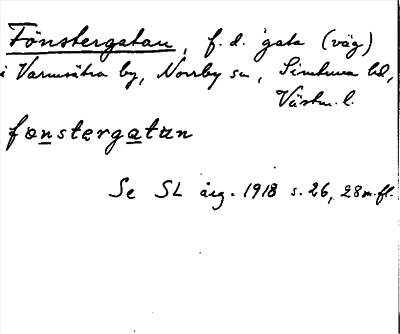 Fönstergatan, f. d. gata (väg)
i Varmsätra by, Norrby sn, Simtuna hd,
Västm. l.
fönstergatan
Se SL årg. 1918 s. 26, 28 m. fl.